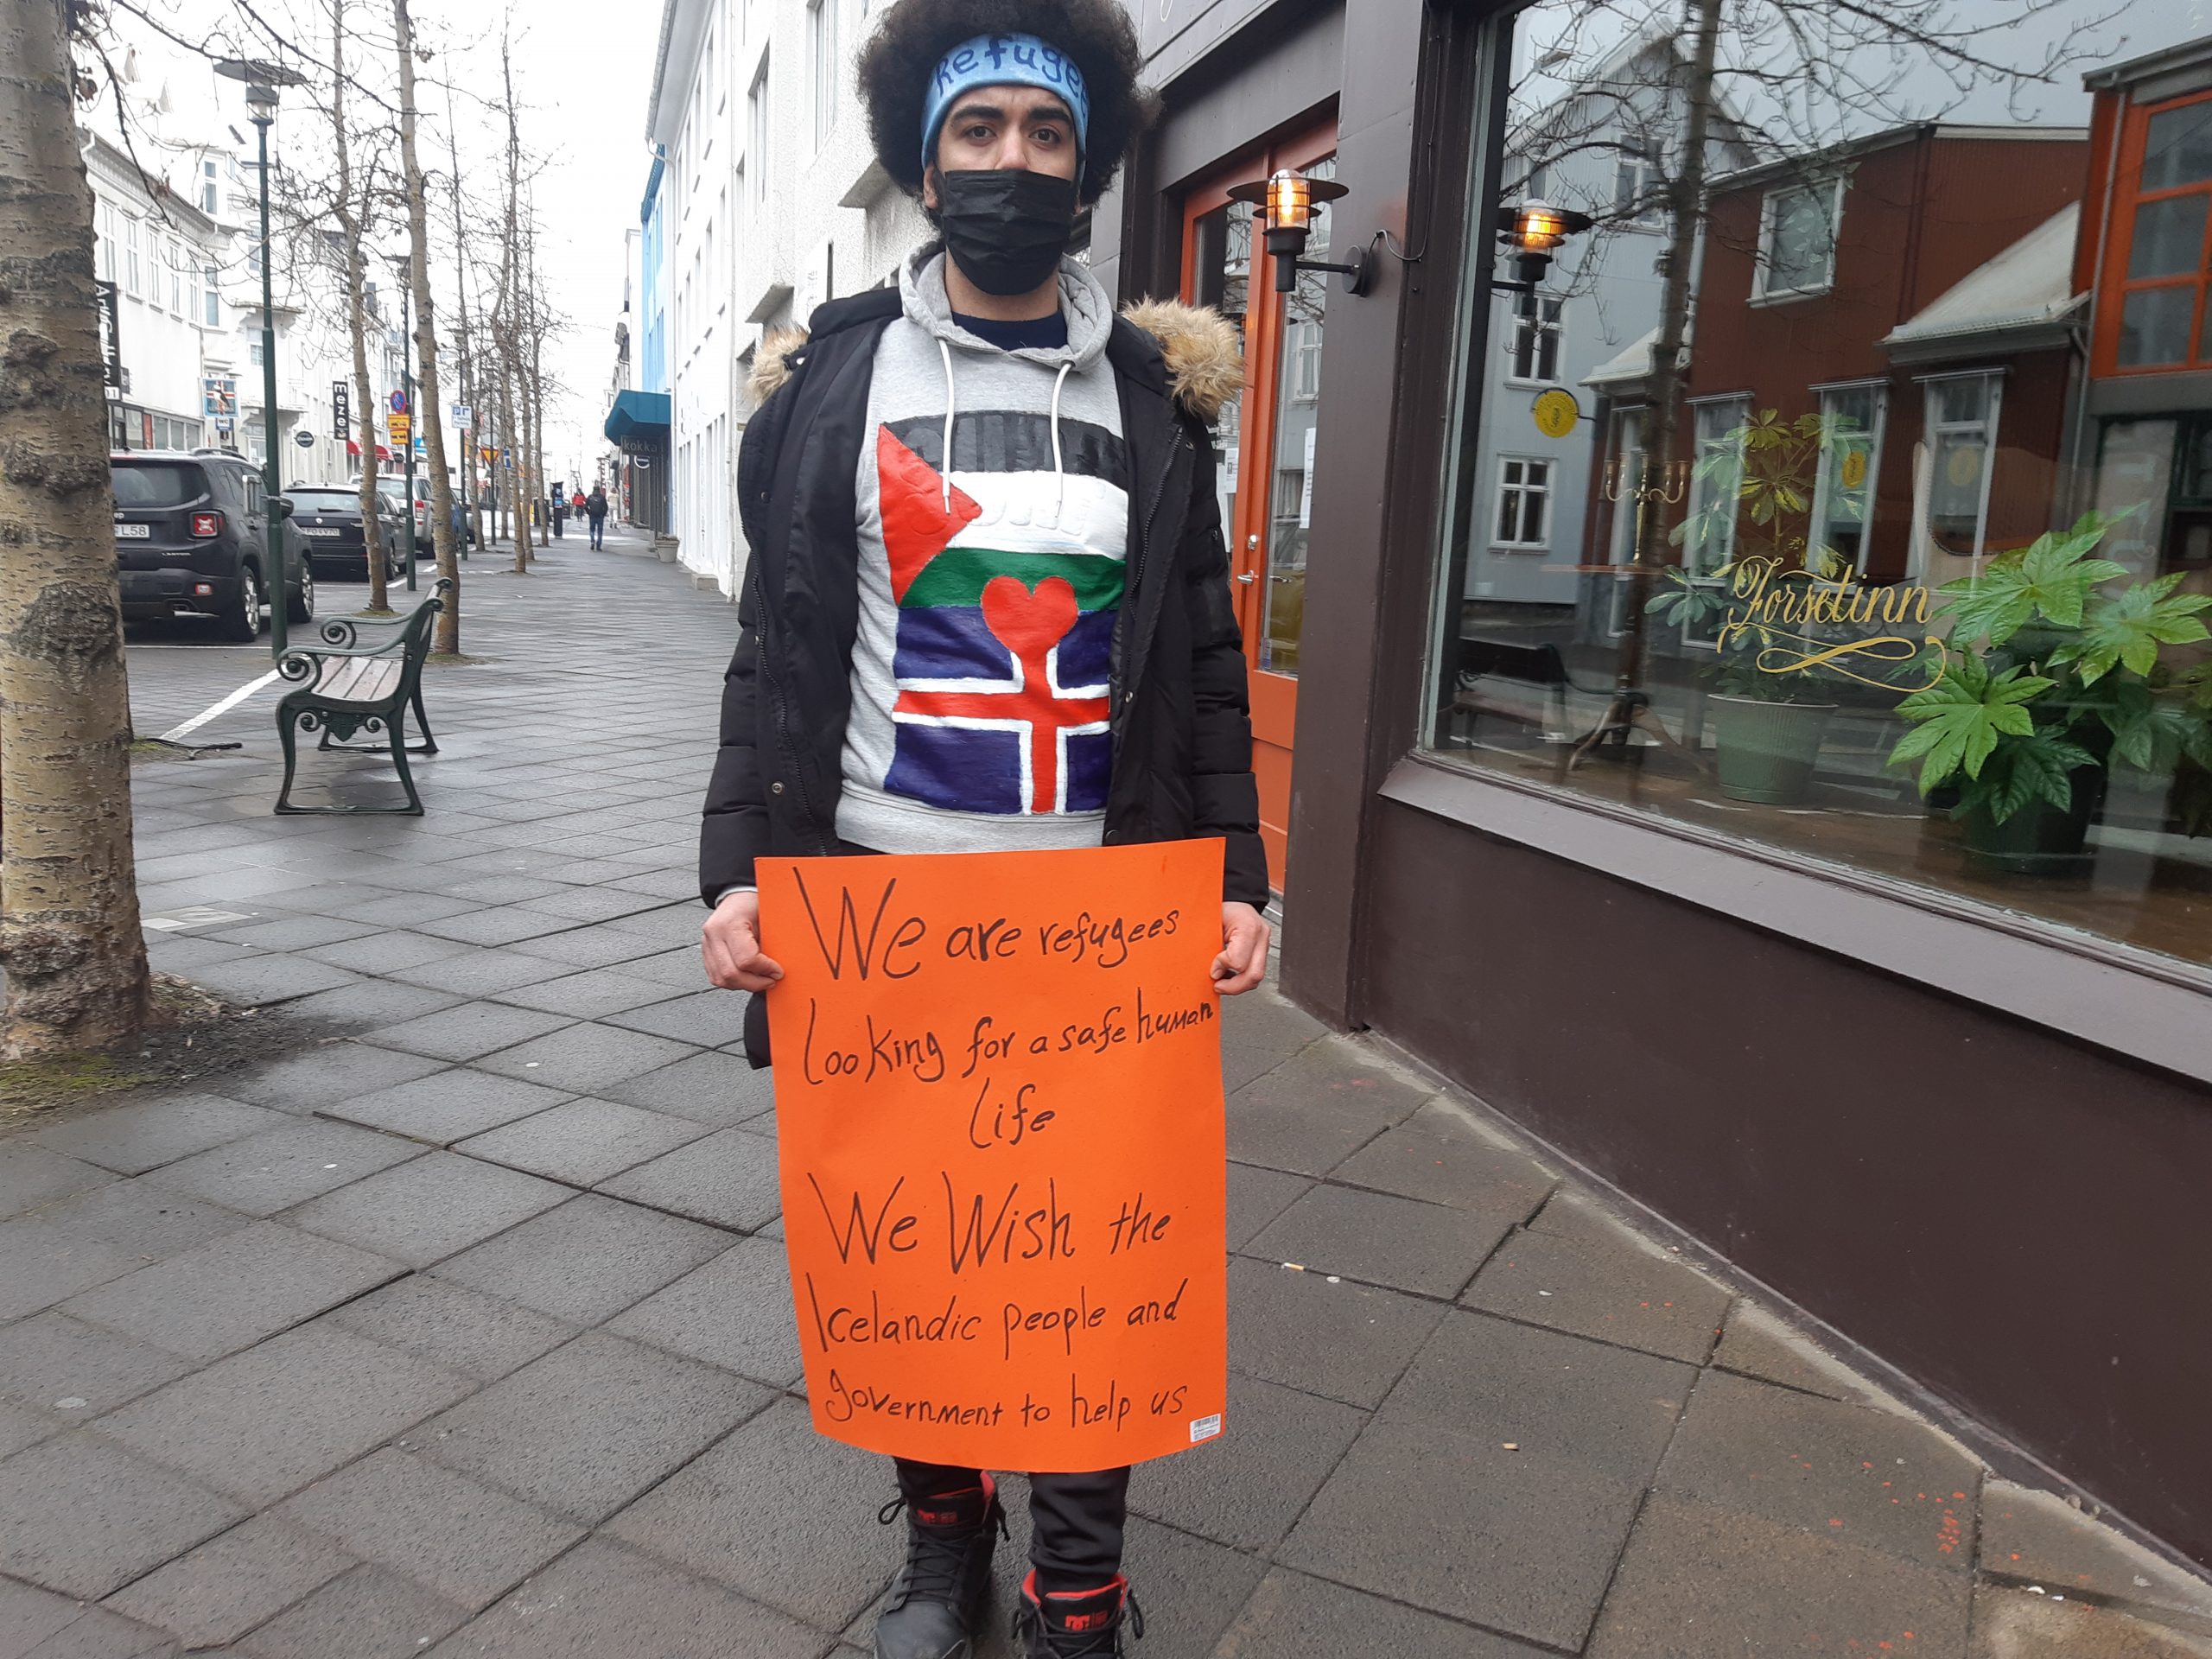 Refugee
We are refugees
Looking for a safe human
Life
We Wish the
Icelandic people and
government to help us
Forsetinn
meze
kokka
L58